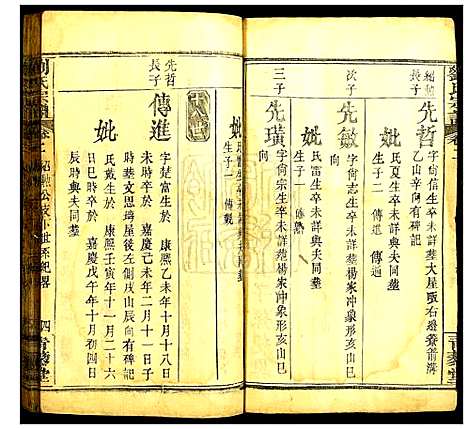 劉氏宗譜
卷二
長子
先哲
字尚信生卒未詳葬大屋畈右邊養箭溝
乙山辛向有碑記
妣
氏夏生卒未詳與夫同葬
生子二 傳進 傳通
次子
先敏
字尚志生卒未詳葬楊家冲象形亥山巳
向
三子
先璜
字尚宗生卒未詳葬楊家冲象形亥山巳
向
妣
氏雷生卒未詳與夫同葬
生子一
十八世
先哲
長子
傳進
字楚富生於 康熙乙未年十月十八日
未時卒於 嘉慶己未年二月十一日子
時葬文思塆屋後左側戌山辰向有碑記
妣
氏戴生於 康熙壬寅年十月二十六
日巳時卒於 嘉慶戊午年十月初四日
辰時與夫同葬
劉氏宗譜
卷二
四
青藜堂